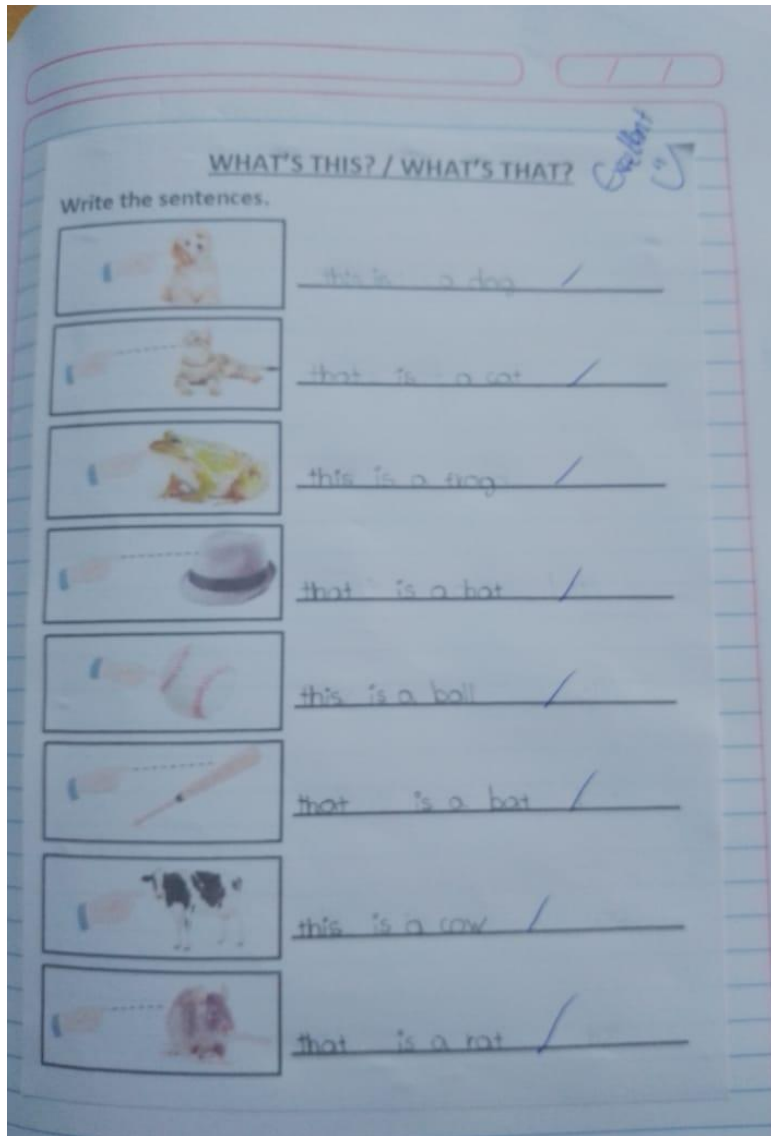 WHAT'S THIS? / WHAT'S THAT?
Excellent
Write the sentences.
this is a dog
that is a cat
this is a frog
that is a hat
this is a ball
that is a bat
this is a cow
that is a rat